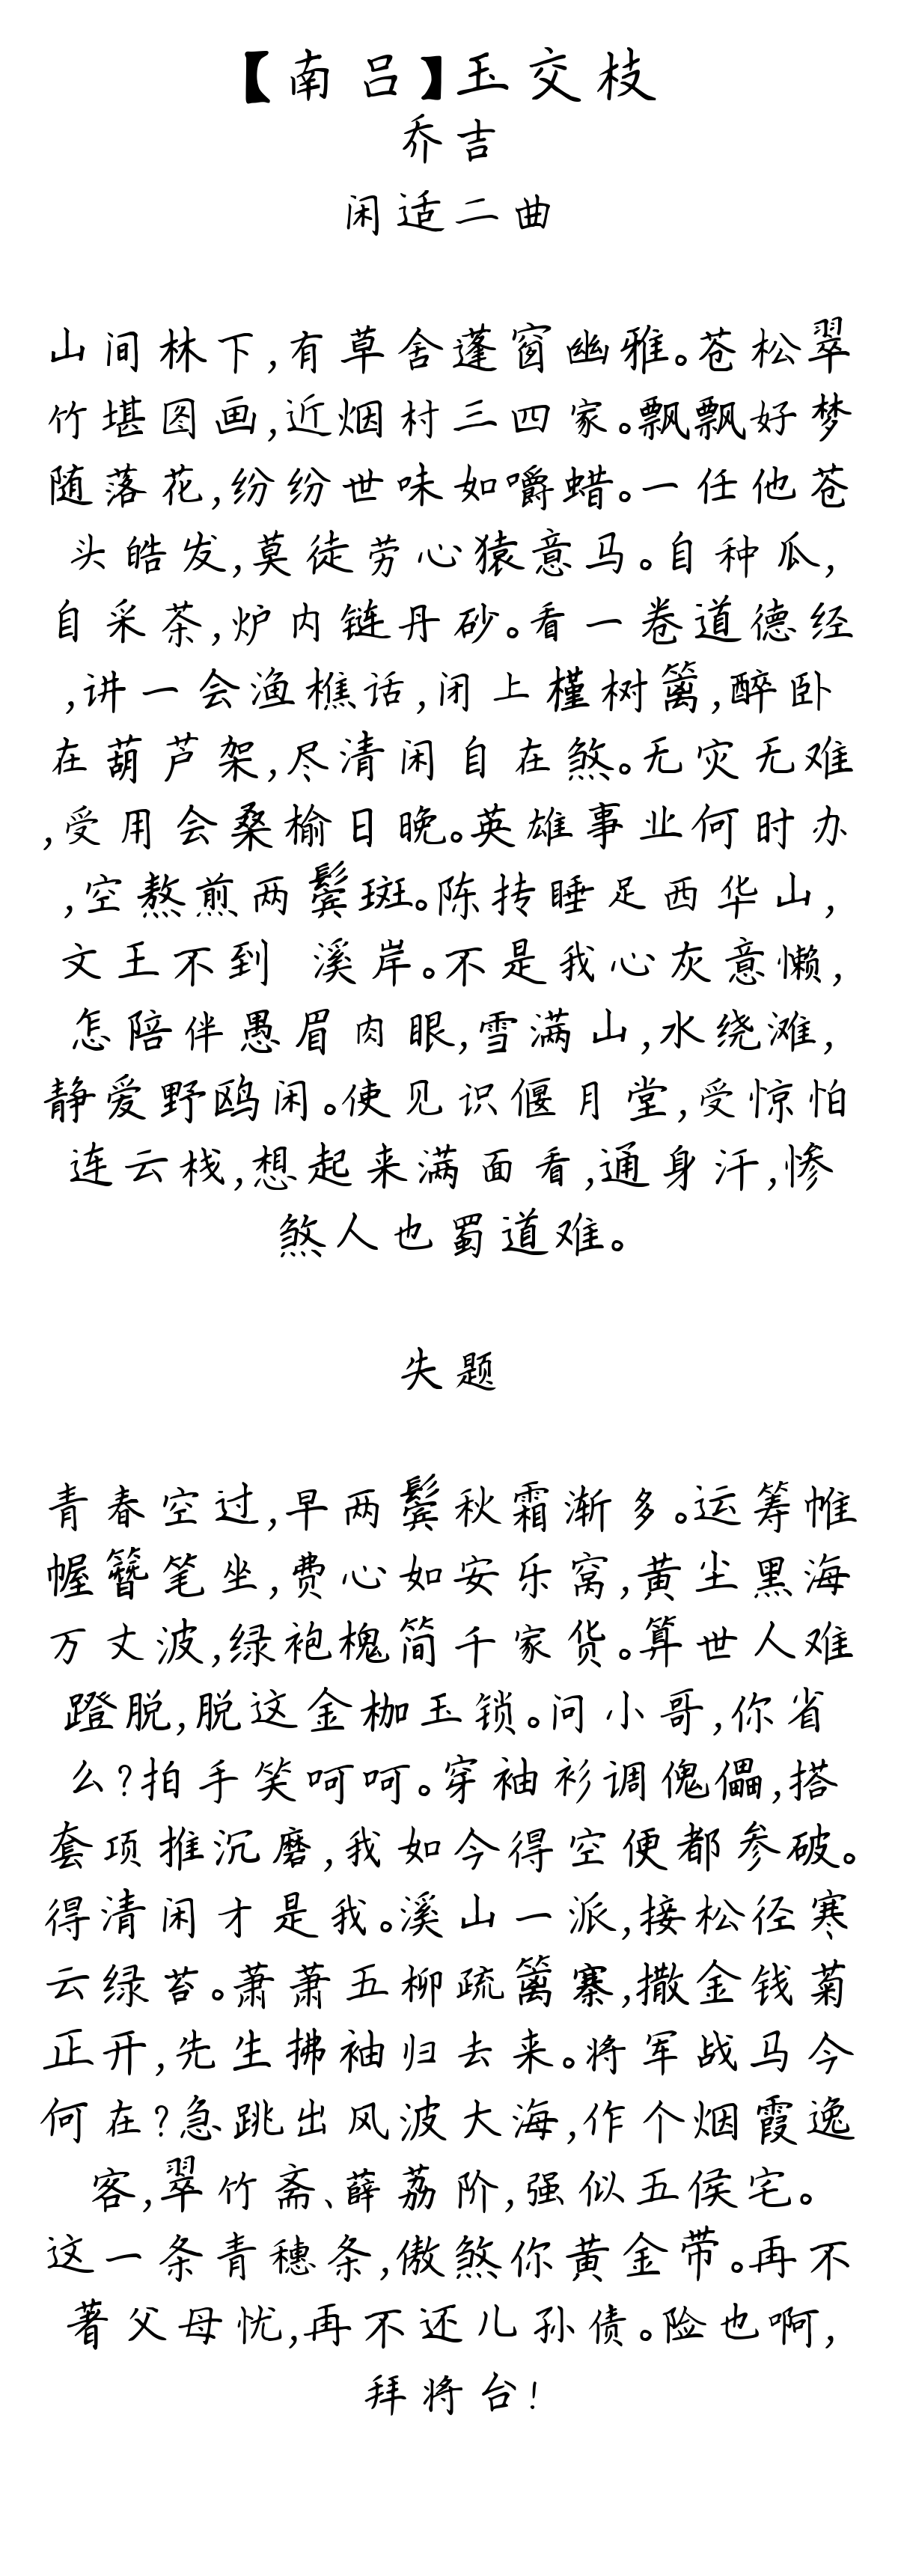 【南吕】玉交枝
乔吉
闲适二曲
山间林下,有草舍蓬窗幽雅。苍松翠
竹堪图画,近烟村三四家。飘飘好梦
随落花,纷纷世味如嚼蜡。一任他苍
头皓发,莫徒劳心猿意马。自种瓜,
自采茶,炉内链丹砂。看一卷道德经
,讲一会渔樵话,闭上槿树篱,醉卧
在葫芦架,尽清闲自在煞。无灾无难
,受用会桑榆日晚。英雄事业何时办
,空熬煎两鬓斑。陈抟睡足西华山,
文王不到 溪岸。不是我心灰意懒,
怎陪伴愚眉肉眼,雪满山,水绕滩,
静爱野鸥闲。使见识偃月堂,受惊怕
连云栈,想起来满面看,通身汗,惨
煞人也蜀道难。
失题
青春空过,早两鬓秋霜渐多。运筹帷
幄簪笔坐,费心如安乐窝,黄尘黑海
万丈波,绿袍槐简千家货。算世人难
蹬脱,脱这金枷玉锁。问小哥,你省
么?拍手笑呵呵。穿袖衫调傀儡,搭
套项推沉磨,我如今得空便都参破。
得清闲才是我。溪山一派,接松径寒
云绿苔。萧萧五柳疏篱寨,撒金钱菊
正开,先生拂袖归去来。将军战马今
何在?急跳出风波大海,作个烟霞逸
客,翠竹斋、薜荔阶,强似五侯宅。
这一条青穗条,傲煞你黄金带。再不
著父母忧,再不还儿孙债。险也啊,
拜将台!